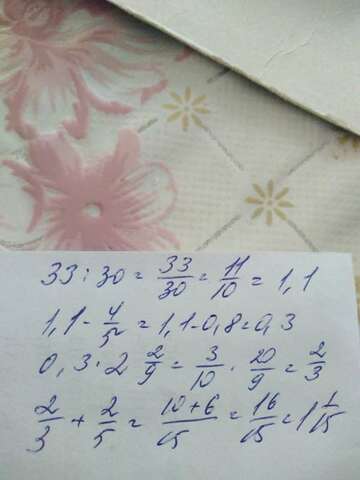 33 : 30 = 33/30 = 11/10 = 1,1
1,1 - 4/5 = 1,1 - 0,8 = 0,3
0,3 · 2 2/9 = 3/10 · 20/9 = 2/3
2/3 + 2/5 = 10+6/15 = 16/15 = 1 1/15